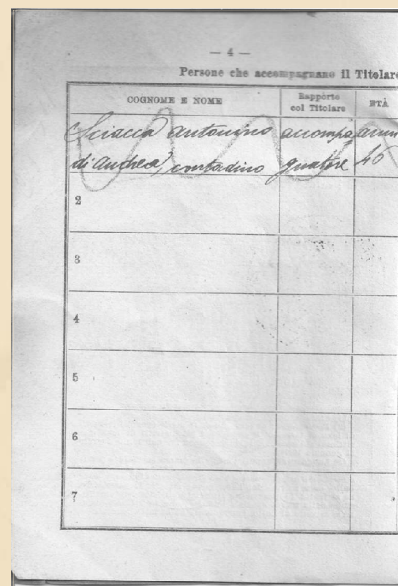 — 4 —
Persone che accompagnano il Titolare
COGNOME E NOME
Rapporto
col Titolare
ETÀ
Sciacca Antonino accompa anni
di Andrea, contadino gnatore 46
2
3
4
5
6
7